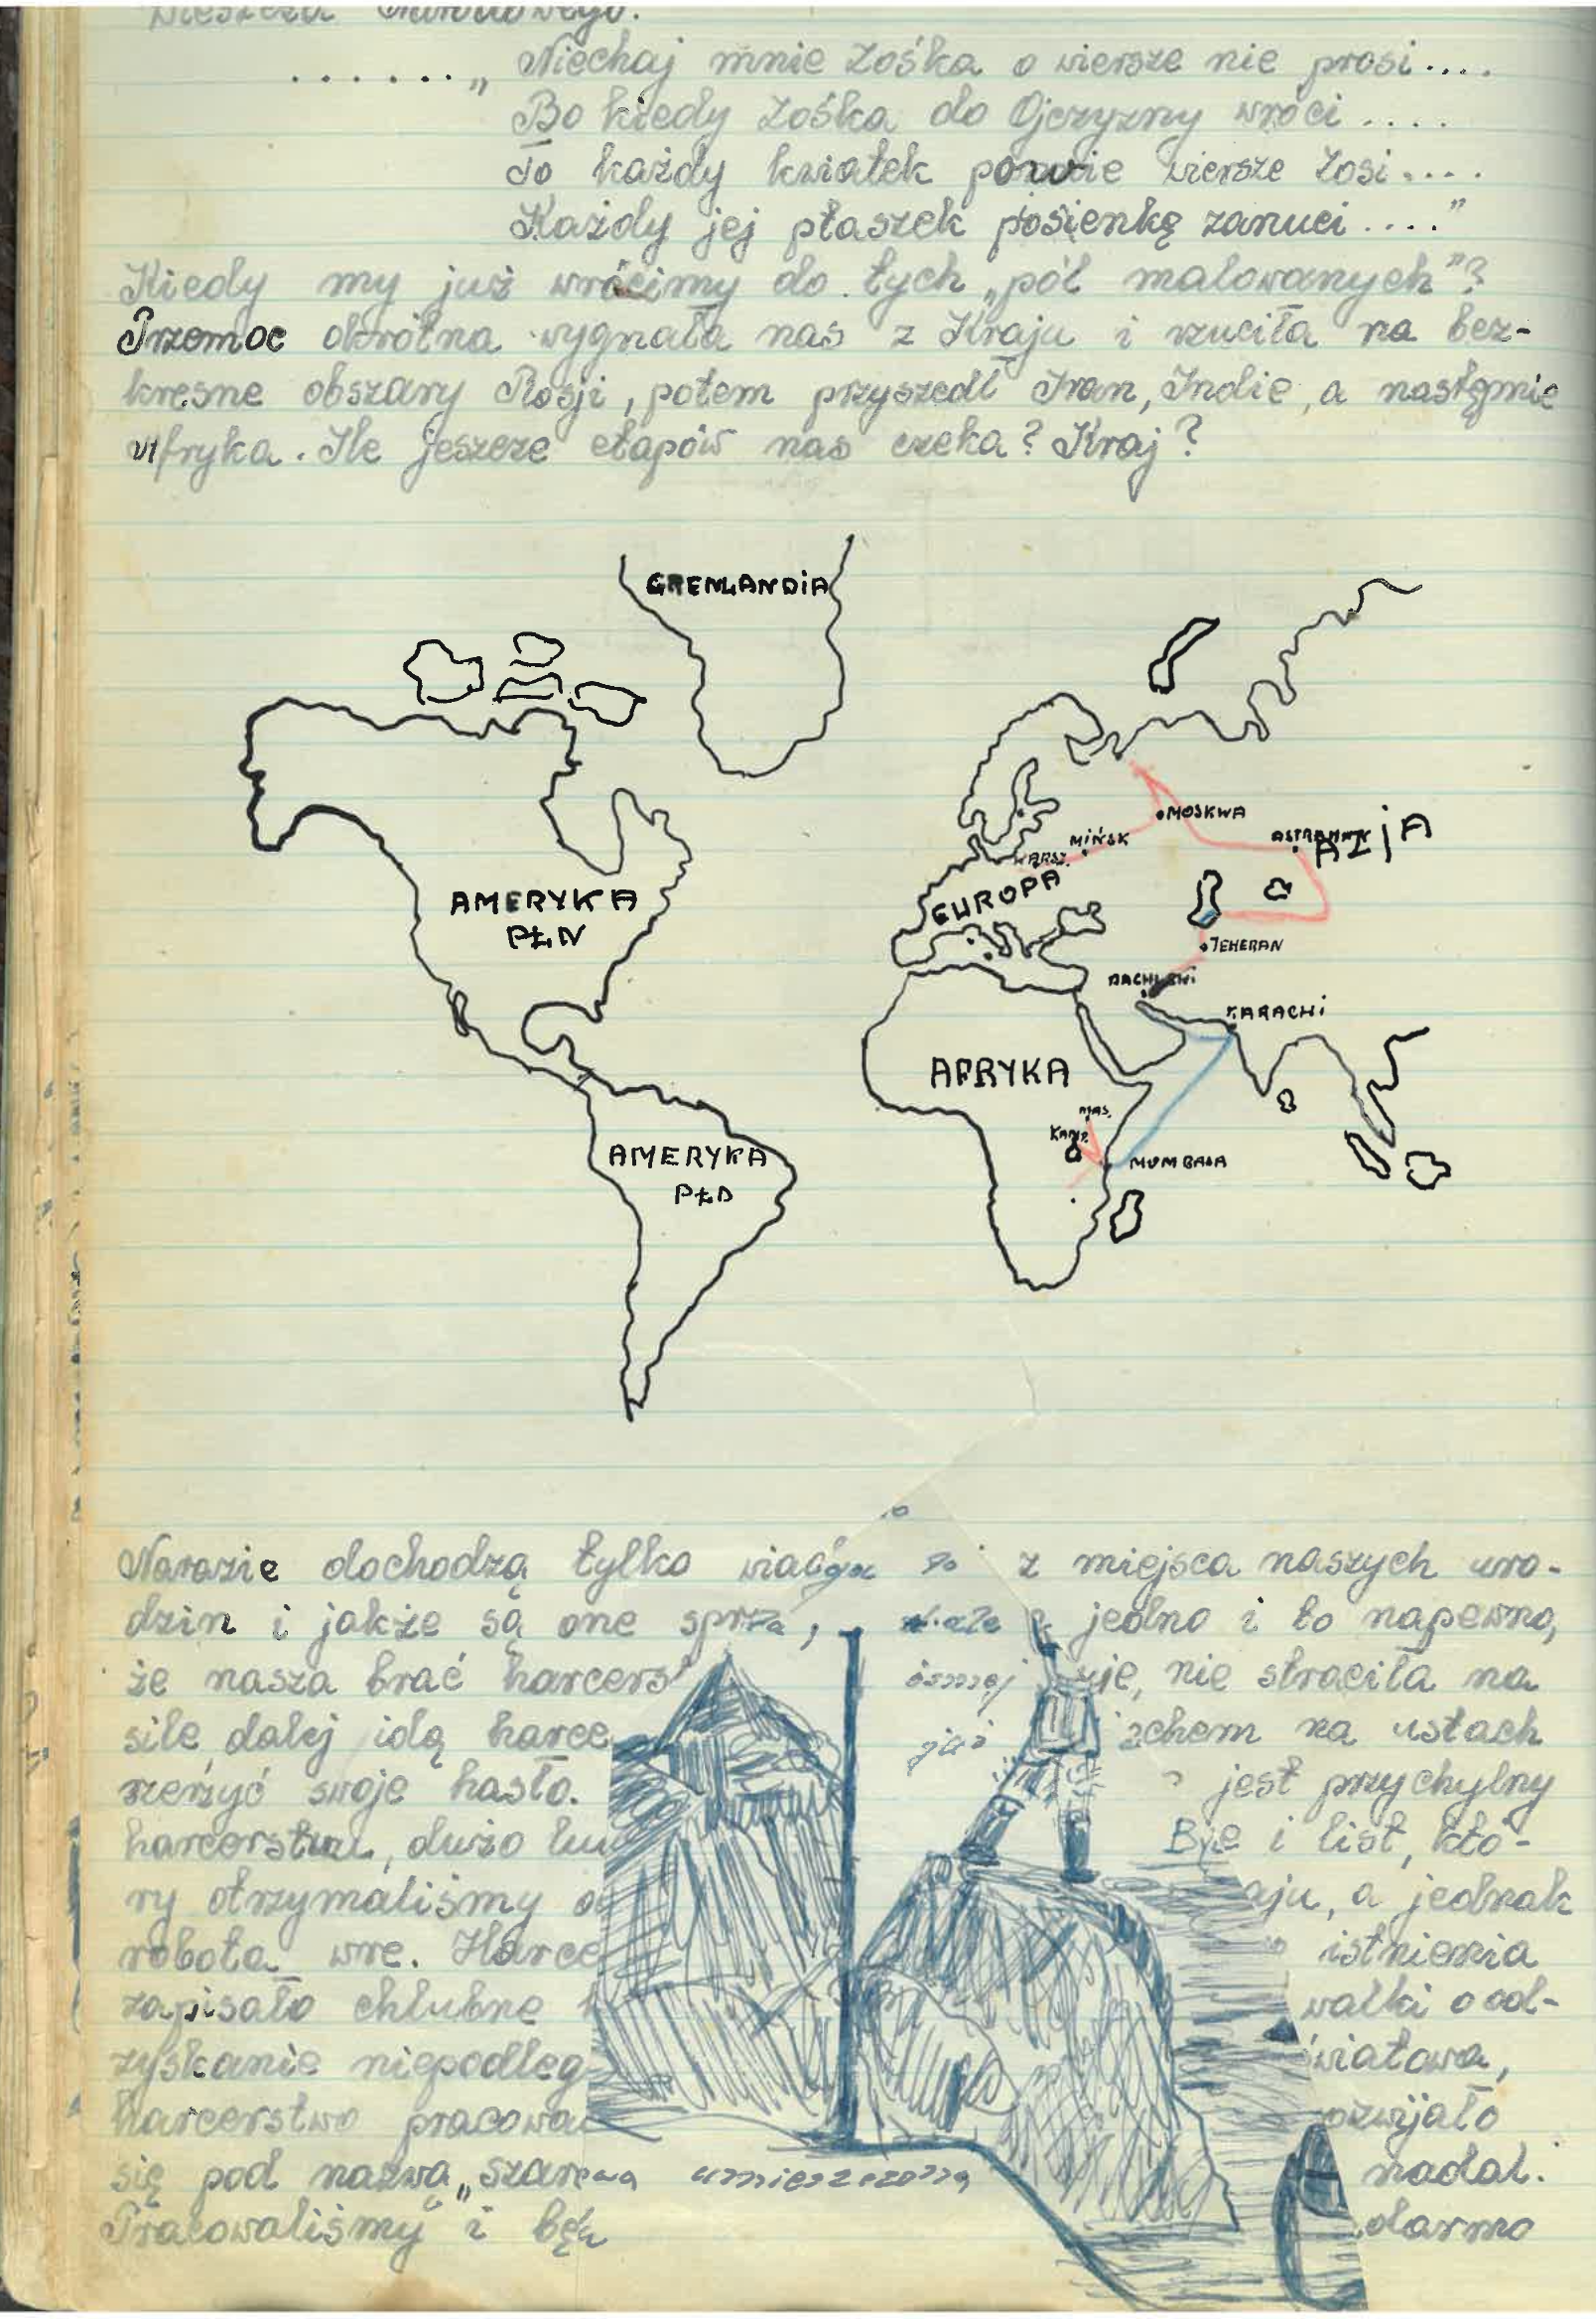 Wieszcza Narodowego.
. . . . . . . „ Niechaj mnie Zośka o wiersze nie prosi....
Bo kiedy Zośka do Ojczyzny wróci ....
To każdy kwiatek powie wiersze Zosi....
Każdy jej ptaszek piosienkę zanuci...."
Kiedy my już wrócimy do tych „pól malowanych"?
Przemoc okrótna wygnała nas z Kraju i rzuciła na bez-
kresne obszary Rosji, potem przyszedł Iran, Indie, a następnie
Afryka. Ile jeszcze etapów nas czeka? Kraj?
GRENLANDIA
MOSKWA
MIŃSK
WARSZ.
AZJA
EUROPA
AMERYKA
PŁN
TEHERAN
KARACHI
AFRYKA
MAS.
KAMP.
MUMBASA
AMERYKA
PŁD
Narazie dochodzą tylko z miejsca naszych uro-
dzin i jakże są one jedno i to napewno,
że nasza brać harcers nie straciła na
sile dalej idą harce na ustach
szerzyć swoje hasło. jest przychylny
harcerstwu, dużo i list, któ-
ry otrzymaliśmy aju, a jednak
robota wre. Harce istnienia
zapisało chlubne walki o od-
zyskanie niepodleg- światowa,
harcerstwo pracowa ozwijało
się pod nazwą „szare umieszczoną nadal.
Pracowaliśmy i będ darmo